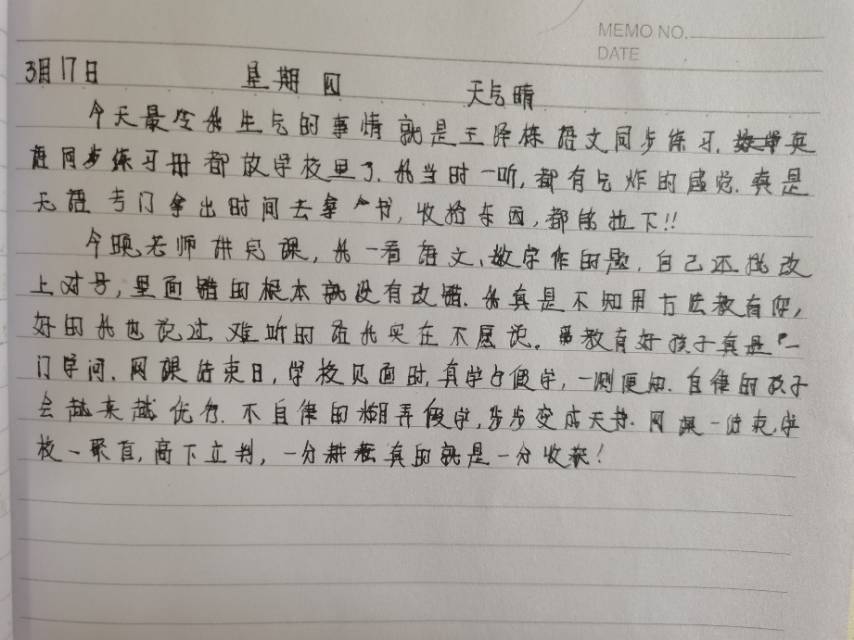 MEMO NO.
DATE
3月17日 星期四 天气晴
今天最令我生气的事情就是王泽栋语文同步练习,数学英
语同步练习册都放学校里了.我当时一听,都有气炸的感觉.真是
无语 专门拿出时间去拿个书,收拾东西,都能拉下!!
今晚老师讲完课,我一看语文、数学作的题,自己还批改
上对号,里面错的根本就没有改错.我真是不知用方法教育你,
好的我也说过,难听的话我实在不愿说。教育好孩子真是一
门学问.网课结束日,学校见面时,真学与假学,一测便知.自律的孩子
会越来越优秀.不自律的糊弄假学,步步变成天书.网课一结束,学
校一聚首,高下立判,一分耕耘真的就是一分收获!